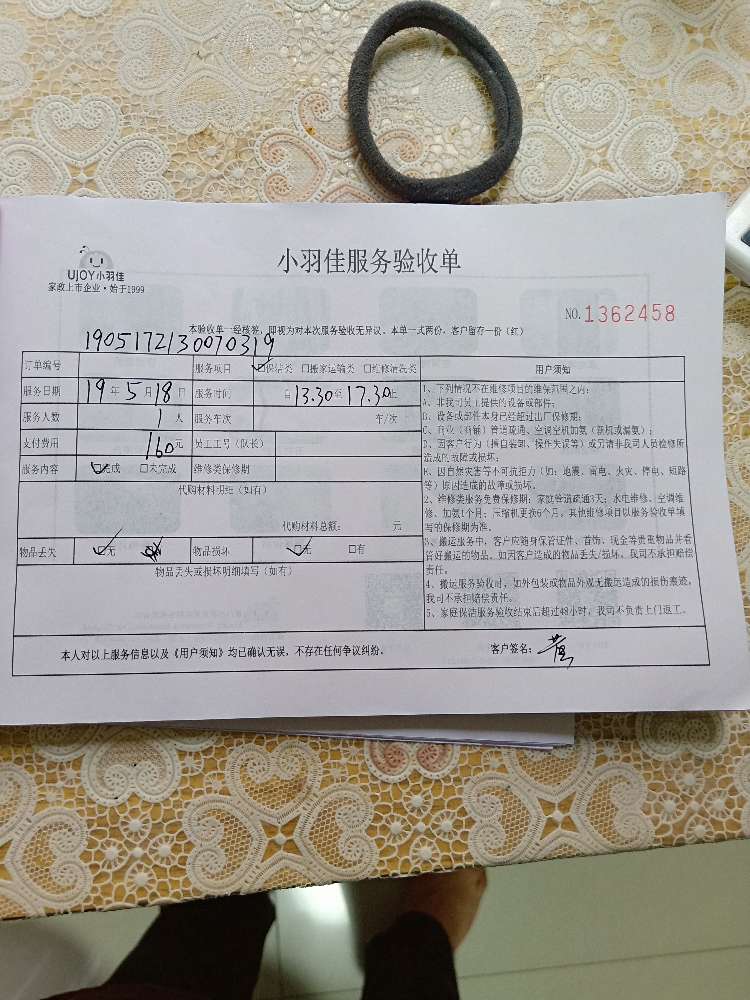 UJOY小羽佳
家政上市企业·始于1999
小羽佳服务验收单
NO.1362458
本验收单一经核签，即视为对本次服务验收无异议。本单一式两份，客户留存一份（红）
1905172130070319
订单编号 服务项目 ☑保洁类 □搬家运输类 □维修清洗类
服务日期 19年5月18日 服务时间 自13.30至17.30止
服务人数 1人 服务车次 车/次
支付费用 160元 员工工号（队长）
服务内容 ☑完成 □未完成 维修类保修期
代购材料明细（如有）
代购材料总额： 元
物品丢失 ☑无 物品损坏 ☑无 □有
物品丢失或损坏明细填写（如有）
用户须知
1、下列情况不在维修项目的维保范围之内：
A、非我司员工提供的设备或部件；
B、设备或部件本身已经超过出厂保修期；
C、商业（商铺）管道疏通、空调空机加氨（新机或漏氨）；
D、因客户行为（擅自装卸、操作失误等）或另请非我司人员检修所
造成的故障或损坏；
E、因自然灾害等不可抗拒力（如：地震、雷电、火灾、停电、短路
等）原因造成的故障或损坏。
2、维修类服务免费保修期：家庭管道疏通3天；水电维修、空调维
修、加氨1个月；压缩机更换6个月，其他维修项目以服务验收单填
写的保修期为准。
3、搬运服务中，客户应随身保管证件、首饰、现金等贵重物品并看
管好搬运的物品。如因客户造成的物品丢失/损坏，我司不承担赔偿
责任。
4、搬运服务验收时，如外包装或物品外观无搬运造成的损伤痕迹，
我司不承担赔偿责任。
5、家庭保洁服务验收结束后超过48小时，我司不负责上门返工。
本人对以上服务信息以及《用户须知》均已确认无误，不存在任何争议纠纷。 客户签名：